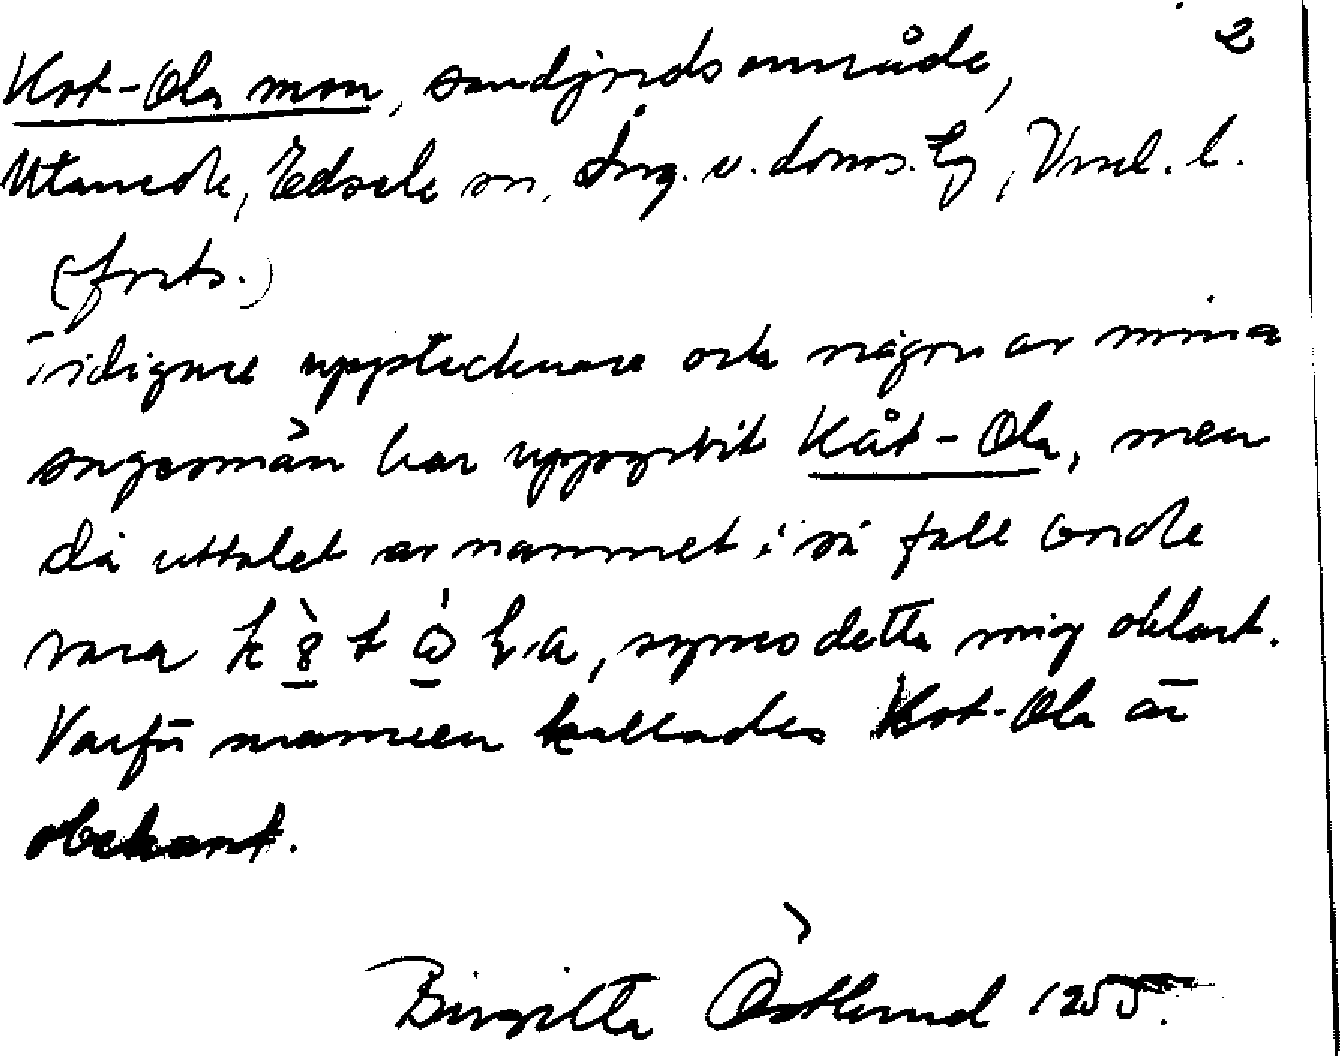 2
Kot-Ola mon, sandjordsområde,
Utanede, Edsele sn, Ång. v. doms. bg, Vnrl. l.
(forts.)
Tidigare upptecknare och några av mina
sagesmän har uppgivit Kåt-Ola, men
då uttalet av namnet i så fall borde
vara, synes detta mig oklart.
Varför mannen kallades Kot-Ola är
obekant.
Birgitta Östlund 1955.